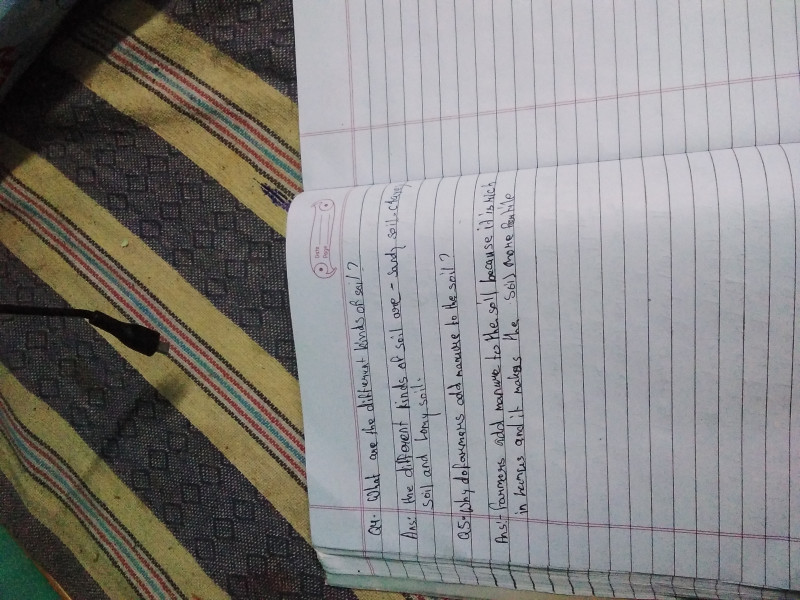 Date
Page
Q4. What are the different kinds of soil?
Ans: the different kinds of soil are - sandy soil, clayey
soil and lomy soil.
Q5. Why do farmers add manure to the soil?
Ans:- farmers add manure to the soil because it is rich
in humus and it makes the soil more fertile